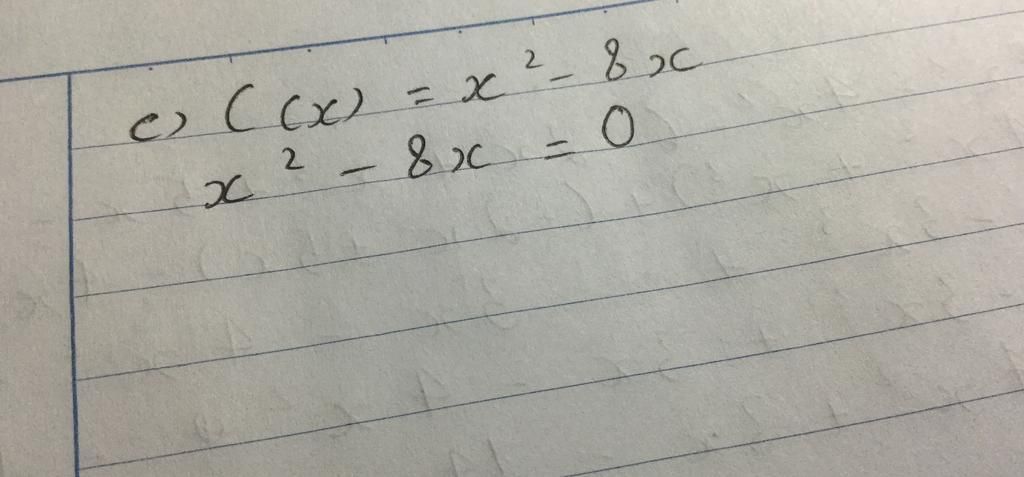 c) C(x) = x² - 8x
x² - 8x = 0